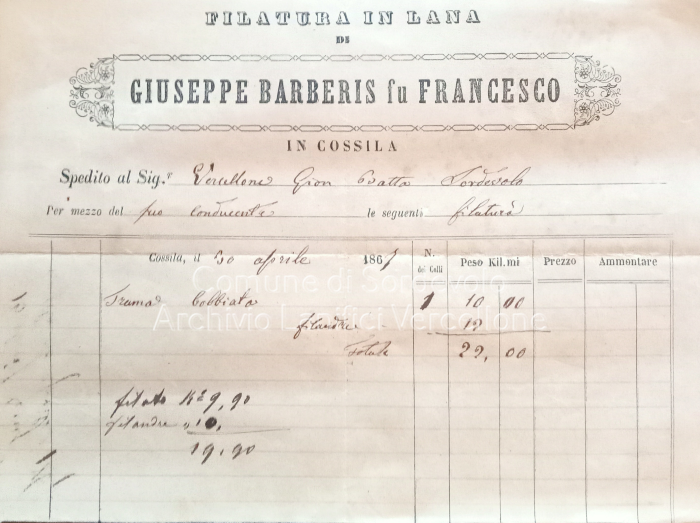 FILATURA IN LANA
DI
GIUSEPPE BARBERIS fu FRANCESCO
IN COSSILA
Spedito al Sig.r Vercellone Gion Batta Sordevolo
Per mezzo del suo conducente le seguenti filatura
Cossila, il 30 aprile 1861 N. dei Colli Peso Kil.mi Prezzo Ammontare
Comune di Sordevolo
Trama bobbiata 1 10 00
Archivio Lanifici Vercellone
filandre 12
Totale 22, 00
filato K° 9,90
filandre " 10,
19,90